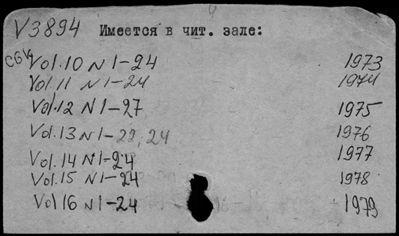 V3894 Имеется в чит. зале:
Vol. 10 N 1-24 1973
Vol. 11 N 1-24 1974
Vol. 12 N 1-27 1975
Vol. 13 N 1-22, 24 1976
Vol. 14 N 1-24 1977
Vol. 15 N 1-24 1978
Vol 16 N 1-24 1979